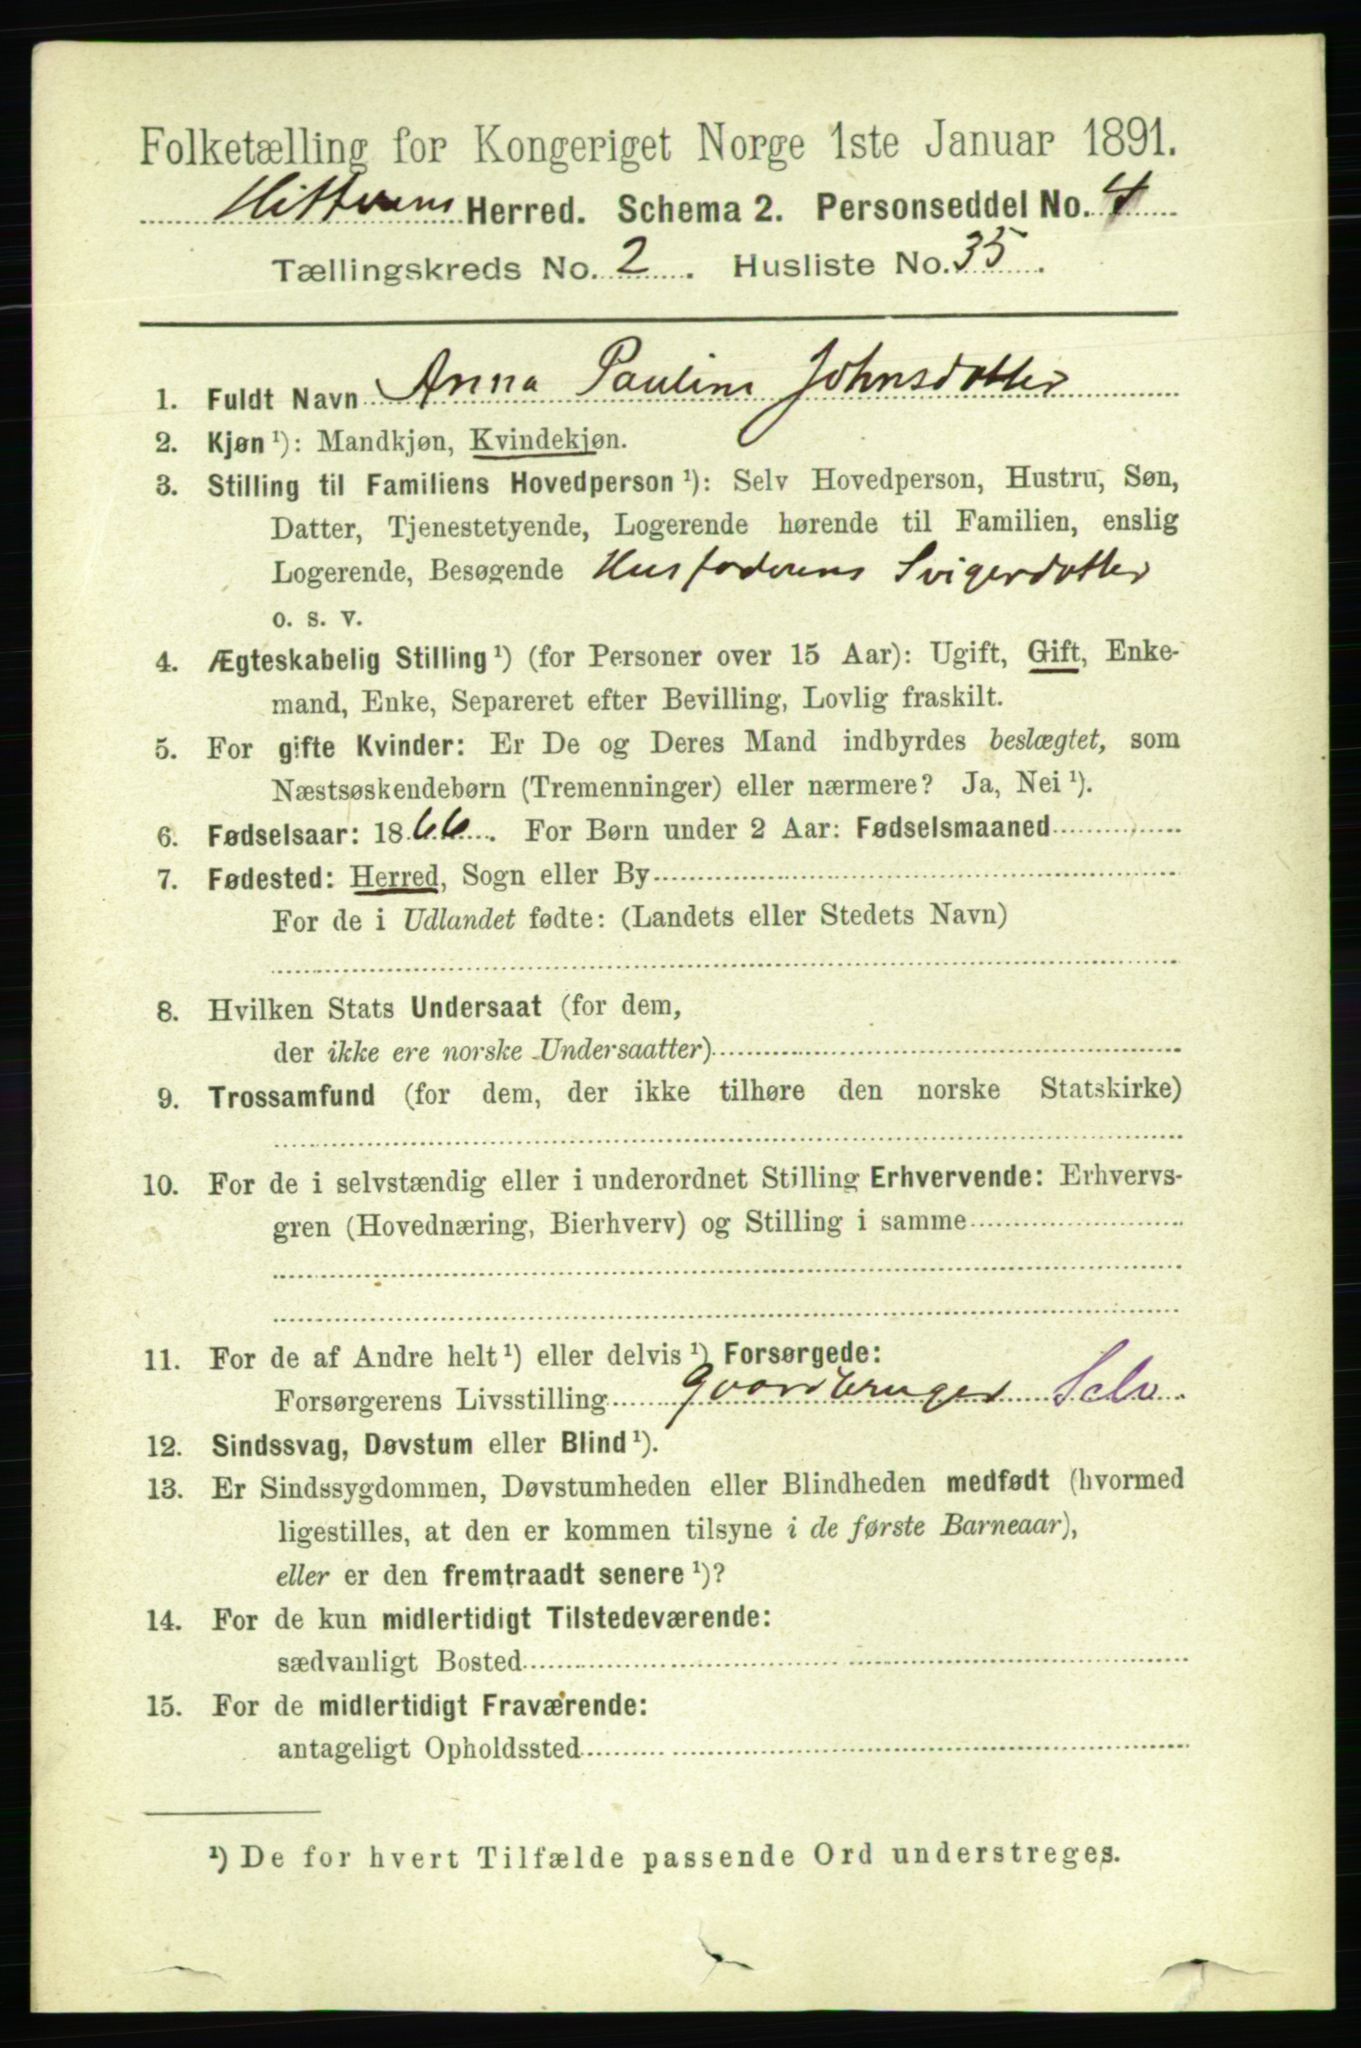 Folketælling for Kongeriget Norge 1ste Januar 1891.
Hitterens Herred. Schema 2. Personseddel No. 4
Tællingskreds No. 2. Husliste No. 35.
1. Fuldt Navn Anna Pauline Johnsdotter
2. Kjøn ¹): Mandkjøn, Kvindekjøn.
3. Stilling til Familiens Hovedperson ¹): Selv Hovedperson, Hustru, Søn,
Datter, Tjenestetyende, Logerende hørende til Familien, enslig
Logerende, Besøgende Husfaderens Svigerdotter
o. s. v.
4. Ægteskabelig Stilling ¹) (for Personer over 15 Aar): Ugift, Gift, Enke-
mand, Enke, Separeret efter Bevilling, Lovlig fraskilt.
5. For gifte Kvinder: Er De og Deres Mand indbyrdes beslægtet, som
Næstsøskendebørn (Tremenninger) eller nærmere? Ja, Nei ¹).
6. Fødselsaar: 1866. For Børn under 2 Aar: Fødselsmaaned
7. Fødested: Herred, Sogn eller By
For de i Udlandet fødte: (Landets eller Stedets Navn)
8. Hvilken Stats Undersaat (for dem,
der ikke ere norske Undersaatter)
9. Trossamfund (for dem, der ikke tilhøre den norske Statskirke)
10. For de i selvstændig eller i underordnet Stilling Erhvervende: Erhvervs-
gren (Hovednæring, Bierhverv) og Stilling i samme
11. For de af Andre helt ¹) eller delvis ¹) Forsørgede:
Forsørgerens Livsstilling Gaardbruger Selv.
12. Sindssvag, Døvstum eller Blind ¹).
13. Er Sindssygdommen, Døvstumheden eller Blindheden medfødt (hvormed
ligestilles, at den er kommen tilsyne i de første Barneaar),
eller er den fremtraadt senere ¹)?
14. For de kun midlertidigt Tilstedeværende:
sædvanligt Bosted
15. For de midlertidigt Fraværende:
antageligt Opholdssted
¹) De for hvert Tilfælde passende Ord understreges.